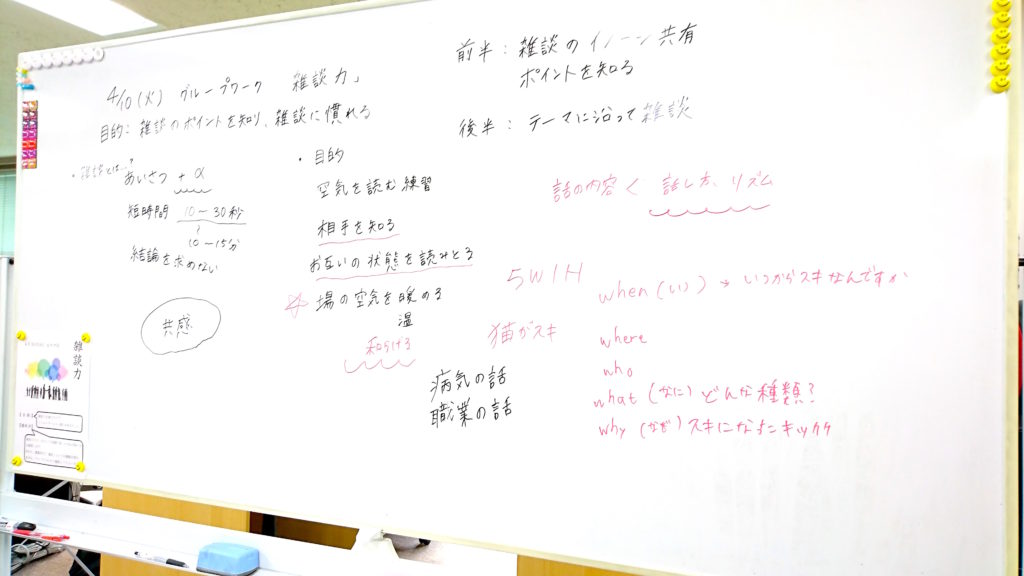 4/10(火) グループワーク 雑談力」
目的: 雑談のポイントを知り、雑談に慣れる
前半: 雑談の 共有
ポイントを知る
後半: テーマに沿って雑談
・雑談とは…?
あいさつ + α
短時間 10〜30秒
10〜15分
結論を求めない
共感
・目的
空気を読む練習
相手を知る
お互いの状態を読みとる
☆場の空気を暖める
温
和らげる
病気の話
職業の話
話の内容 < 話し方、リズム
5W1H
猫がスキ
when(いつ) → いつからスキなんですか
where
who
what(なに) どんな種類?
why(なぜ) スキになった
雑談力